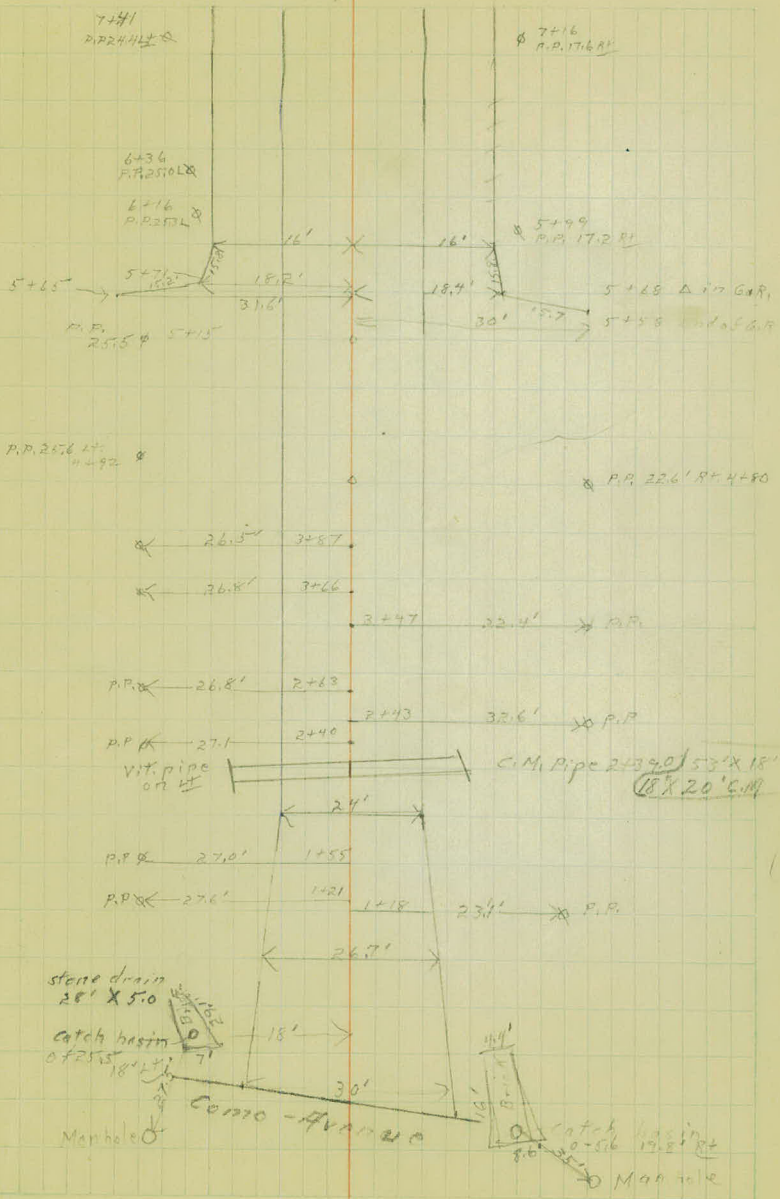 7+41
P.P. 24.4 Lt
7+16
P.P. 17.6 Rt
6+36
P.P. 25.0 L
6+16
P.P. 25.3 L
5+99
P.P. 17.2 Rt
16'
16'
15.8
5+71
15.2'
18.2'
18.4'
5+65
31.6'
5+68 Δ in G.R.
30'
15.7
5+58 end of G.R
P.P.
25.5 5+15
P.P. 25.6 Lt.
4+92
P.P. 22.6' Rt. 4+80
26.5' 3+87
26.8' 3+66
3+47 22.4' P.P.
P.P. 26.8' 2+63
2+43 32.6' P.P
P.P 27.1 2+40
Vit. pipe
on Lt
C.M. Pipe 53' X 18"
18" X 20' C.M
24'
P.P 27.0' 1+55
P.P 27.6' 1+21
1+18 23.1' P.P.
26.7'
stone drain
28' X 5.0
catch basin
0+25.5
18' Lt
7'
18'
30'
Como - Avenue
Manhole
16'
Catch basin
0-5.6 19.8' Rt
8.6'
35'
Manhole